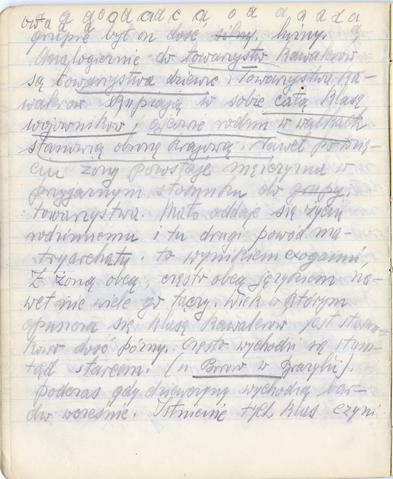 grupie był on dość silny. liczny.
Analogicznie do towarzystw kawalerów
są towarzystwa dziewic i towarzystwa ka-
walerów skupiają w sobie całą klasę
wojowników, łącznie rodzin w walkach
stanowią obronę krajową. Nawet po wzię-
ciu żony pozostaje mężczyzna w
przyjaznym stosunku do grupy,
towarzystwa. Mało oddaje się życiu
rodzinnemu i tu drugi powód ma-
tryarchatu. to wynikiem exogamii
Z żoną obcą, często obcą językiem na-
wet nie wiele go łączy. Wiek w którym
opuszcza się klasę kawalerów jest stosun-
kowo dość późny. Często wychodzi się stam-
tąd starcem. (u Boror w Brazylii).
podczas gdy dziewczyny wychodzą bar-
dzo wcześnie. Istnienie tych klas czyni